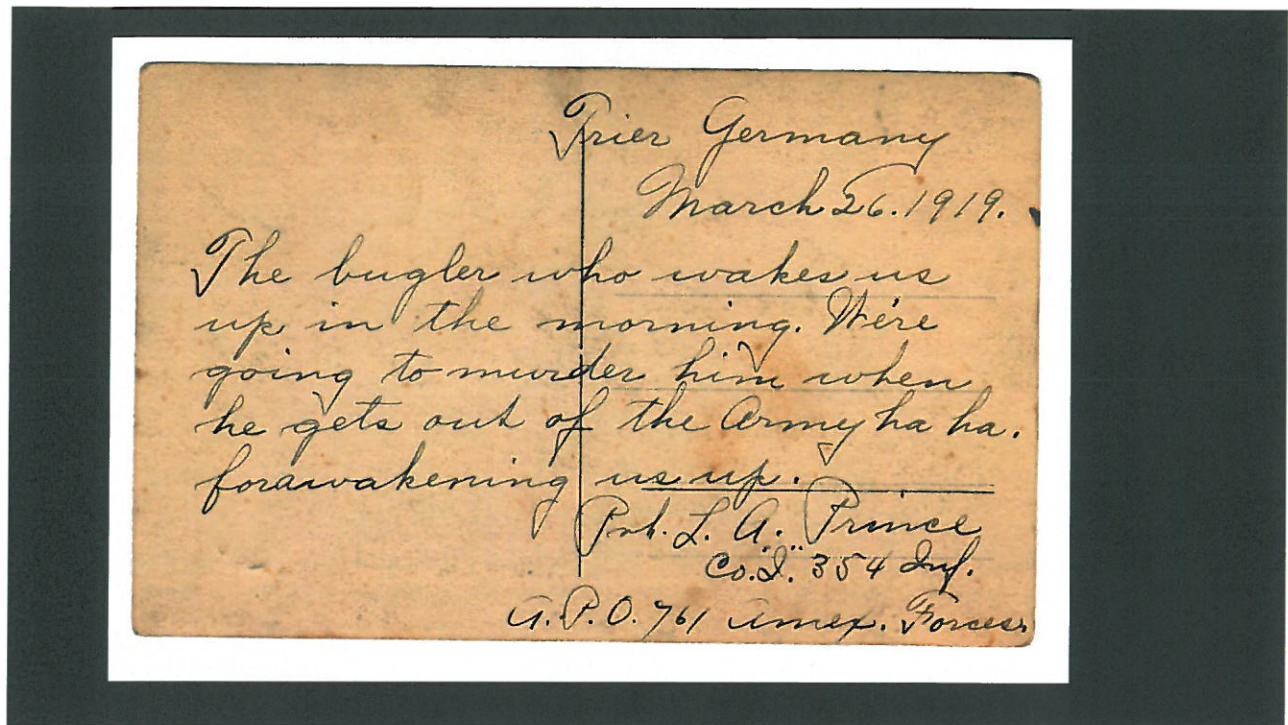 Trier Germany
March 26. 1919.
The bugler who wakes us
up in the morning. We're
going to murder him when
he gets out of the Army ha ha.
forawakening us up.
Pvt. L. A. Prince
Co. "I." 354 Inf.
A.P.O. 761 Amex. Forces.